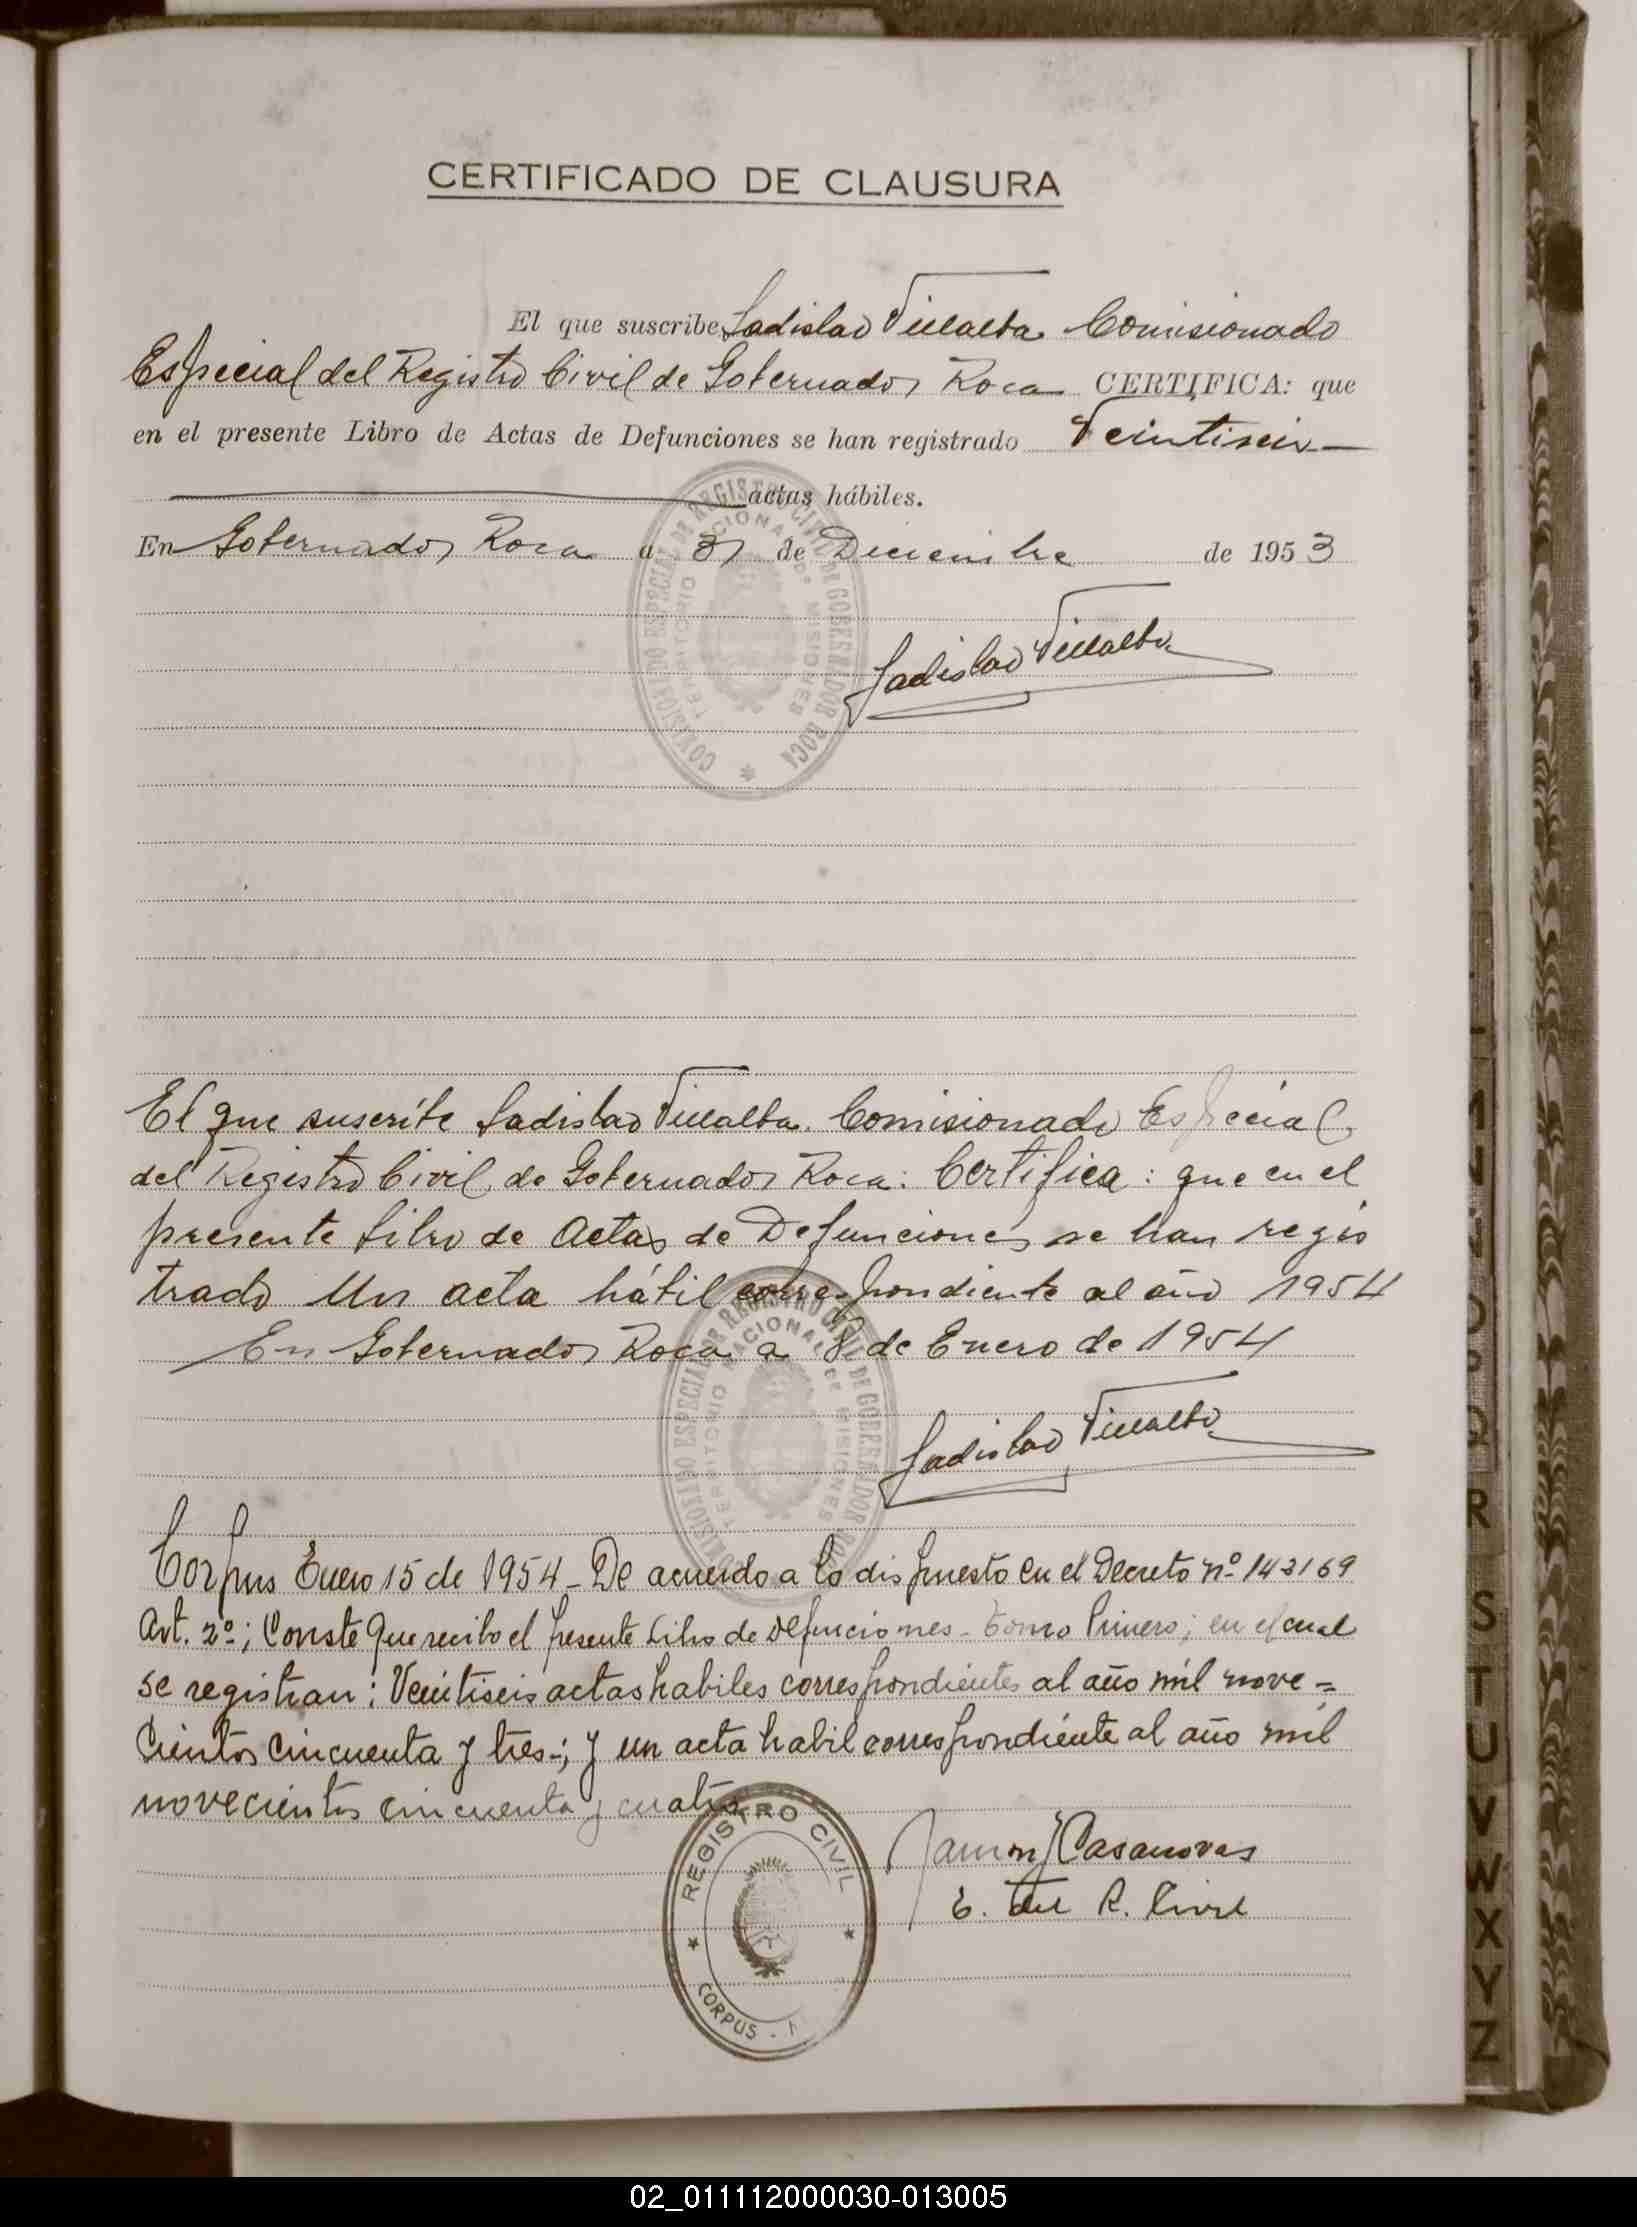 CERTIFICADO DE CLAUSURA
El que suscribe Ladislao Villalba Comisionado
Especial del Registro Civil de Gobernador Roca CERTIFICA: que
en el presente Libro de Actas de Defunciones se han registrado Veintiseis
actas hábiles.
En Gobernador Roca a 31 de Diciembre de 1953
COMISIONADO ESPECIAL DE REGISTRO CIVIL DE GOBERNADOR ROCA
TERRITORIO NACIONAL DE MISIONES
Ladislao Villalba
El que suscribe Ladislao Villalba. Comisionado Especial
del Registro Civil de Gobernador Roca: Certifica: que en el
presente Libro de Actas de Defunciones se han regis
trado Un acta hábil correspondiente al año 1954
En Gobernador Roca a 8 de Enero de 1954
COMISIONADO ESPECIAL DE REGISTRO CIVIL DE GOBERNADOR ROCA
TERRITORIO NACIONAL DE MISIONES
Ladislao Villalba
Corpus Enero 15 de 1954 - De acuerdo a lo dispuesto en el Decreto nº
Art. 2º; Conste que recibo el presente Libro de Defunciones - Tomo Primero; en el cual
se registran: Veintiseis actas habiles correspondientes al año mil nove=
cientos cincuenta y tres-; y un acta habil correspondiente al año mil
novecientos cincuenta y cuatro
REGISTRO CIVIL
CORPUS -
Ramon Casanovas
E. del R. Civil
R
S
T
U
V
W
X
Y
Z
02_011112000030-013005